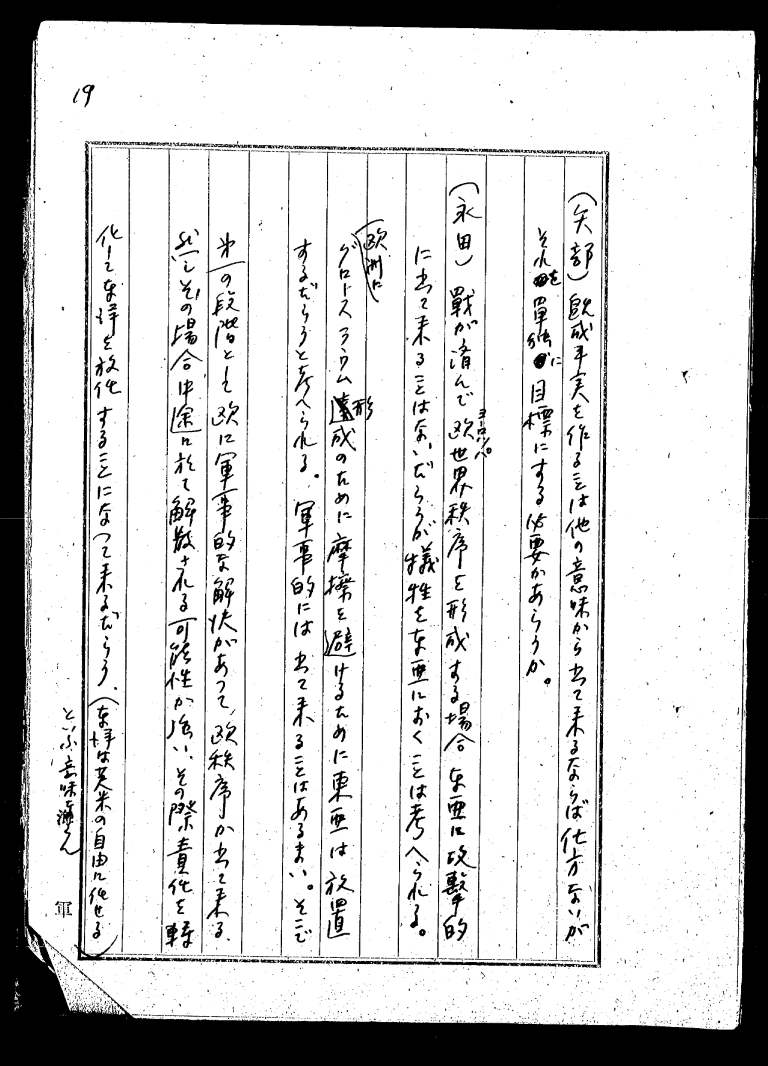 19
(矢部)既成事実を作ることは他の意味から出て来るならば仕方ないが
それを軍独に目標にする必要があらうか。
(永田)戦が済んで欧世界秩序を形成する場合東亜に攻撃的
ヨーロッパ
に出て来ることはないだらうが犠牲を東亜におくことは考へられる。
欧洲に
グロースラウム形成のために摩擦を避けるために東亜は放置
するだらうと考へられる。軍事的には出て来ることはあるまい。そこで
第一の段階として欧に軍事的な解決があつて、欧秩序が出て来る、
然しその場合中途に於て解散される可能性が強い、その際責任を轉
化して東洋を放任することになつて来るだらう、(東洋は英米の自由に任せる
といふ意味
軍